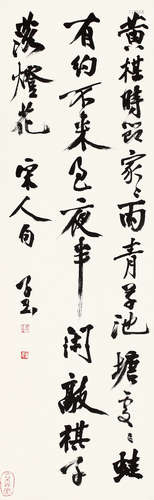 黄楳時節家々雨青草池塘處々蛙
有約不來過夜半閑敲棋子
落燈花 宋人句